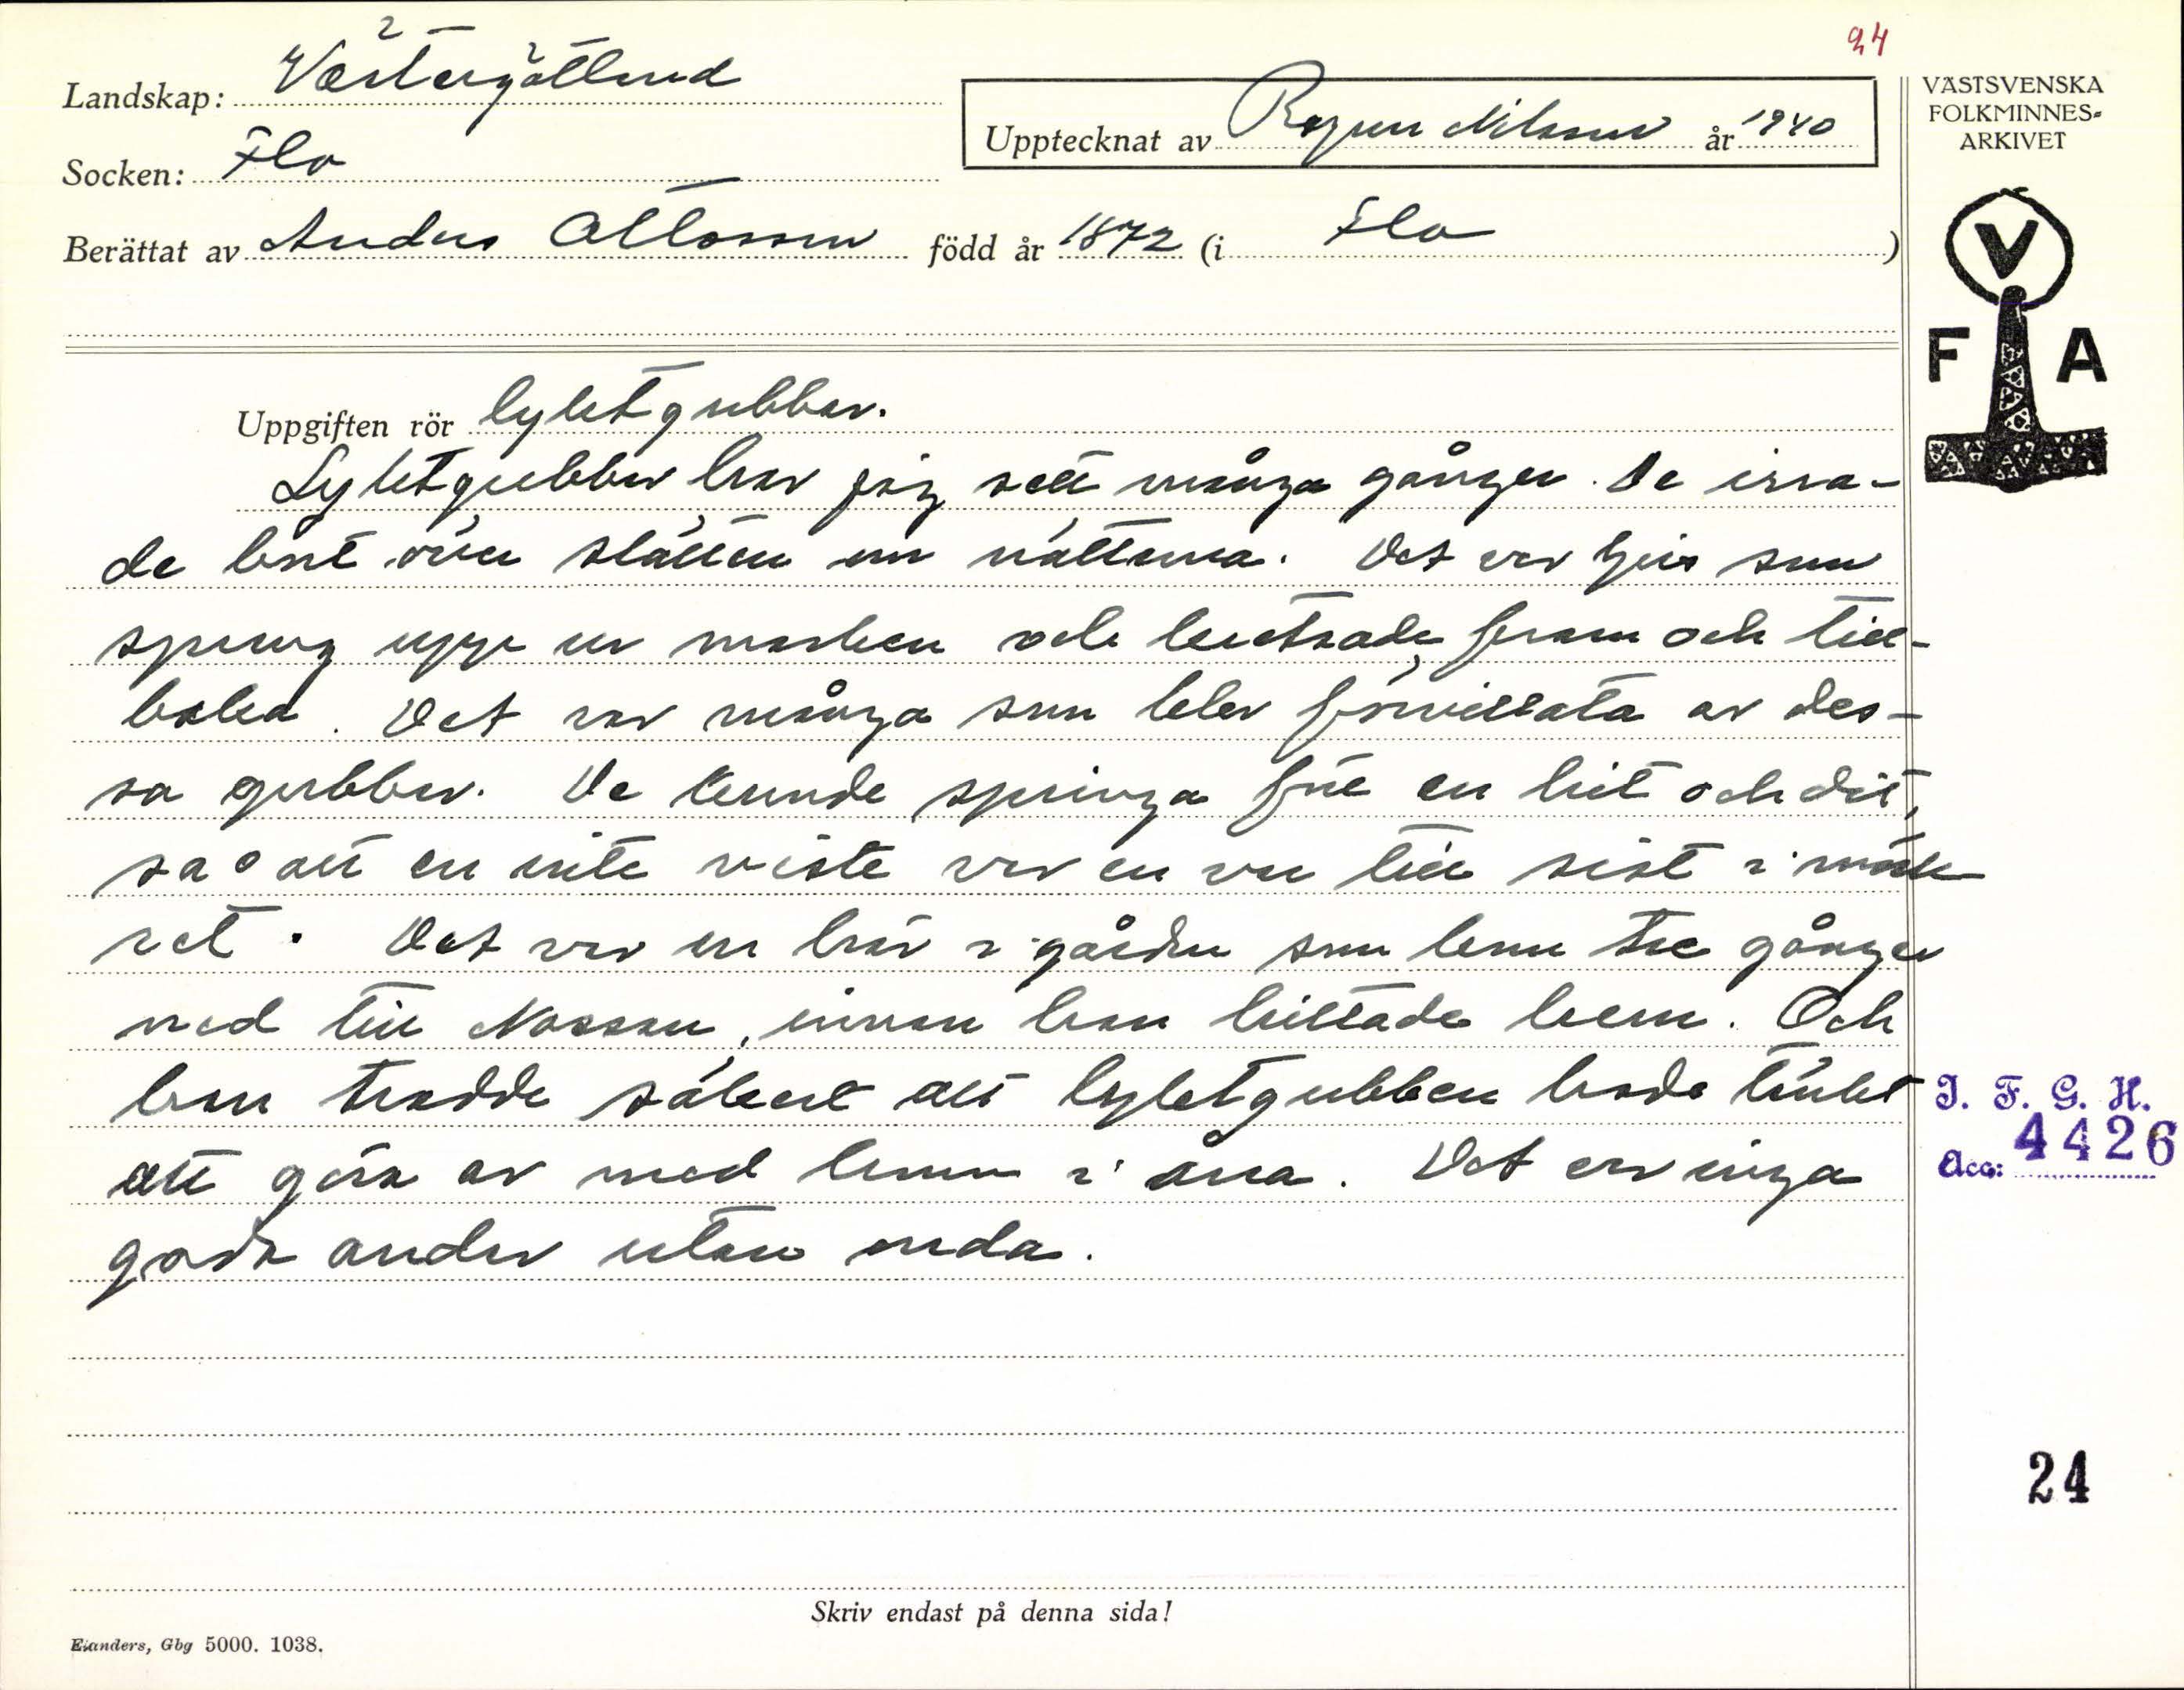 24
Landskap: Västergötland
Upptecknat av Ragnar Nilsson år 1940
Socken: Flo
Berättat av Anders Ottosson född år 1872 (i Flo)
VÄSTSVENSKA
FOLKMINNES=
ARKIVET
V
F A
Uppgiften rör lyktgubbar.
Lyktgubbar har jag sett många gånger. De irra-
de bort över slätten om nätterna. Det var ljus som
sprang upp ur marken och lustrade fram och till-
baka. Det var många som blev förvillata av des-
sa gubbar. De kunde springa för en hit och dit,
så att en inte viste var en var till sist i mörk-
ret. Det var en här i gården som kom tre gånger
ned till Nossan, innan han hittade hem. Och
han trodde säkert att lyktgubben hade tänkt
att göra av med honom i åna. Det var inga
goda andar utan onda.
I. F. G. H.
Acc: 4426
24
Skriv endast på denna sida!
Elanders, Gbg 5000. 1038.